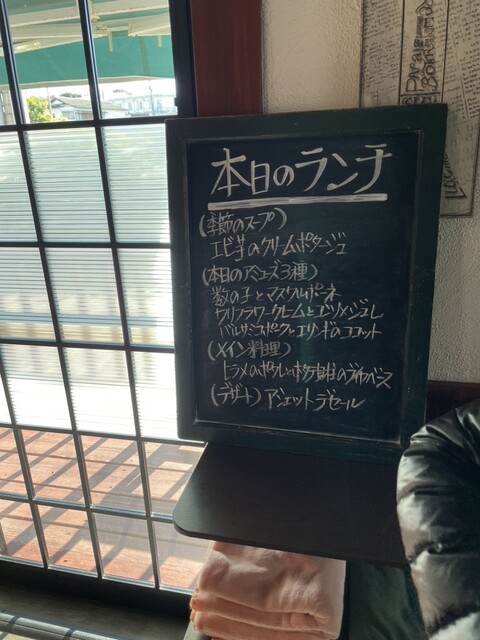 本日のランチ
(季節のスープ)
エビ芋のクリームポタージュ
(本日のアミューズ3種)
数の子とマスカルポーネ
カリフラワークレームとコンソメジュレ
バルサミスポークとエリンギのココット
(メイン料理)
ヒラメのポワレと
(デザート) アシェットデセール